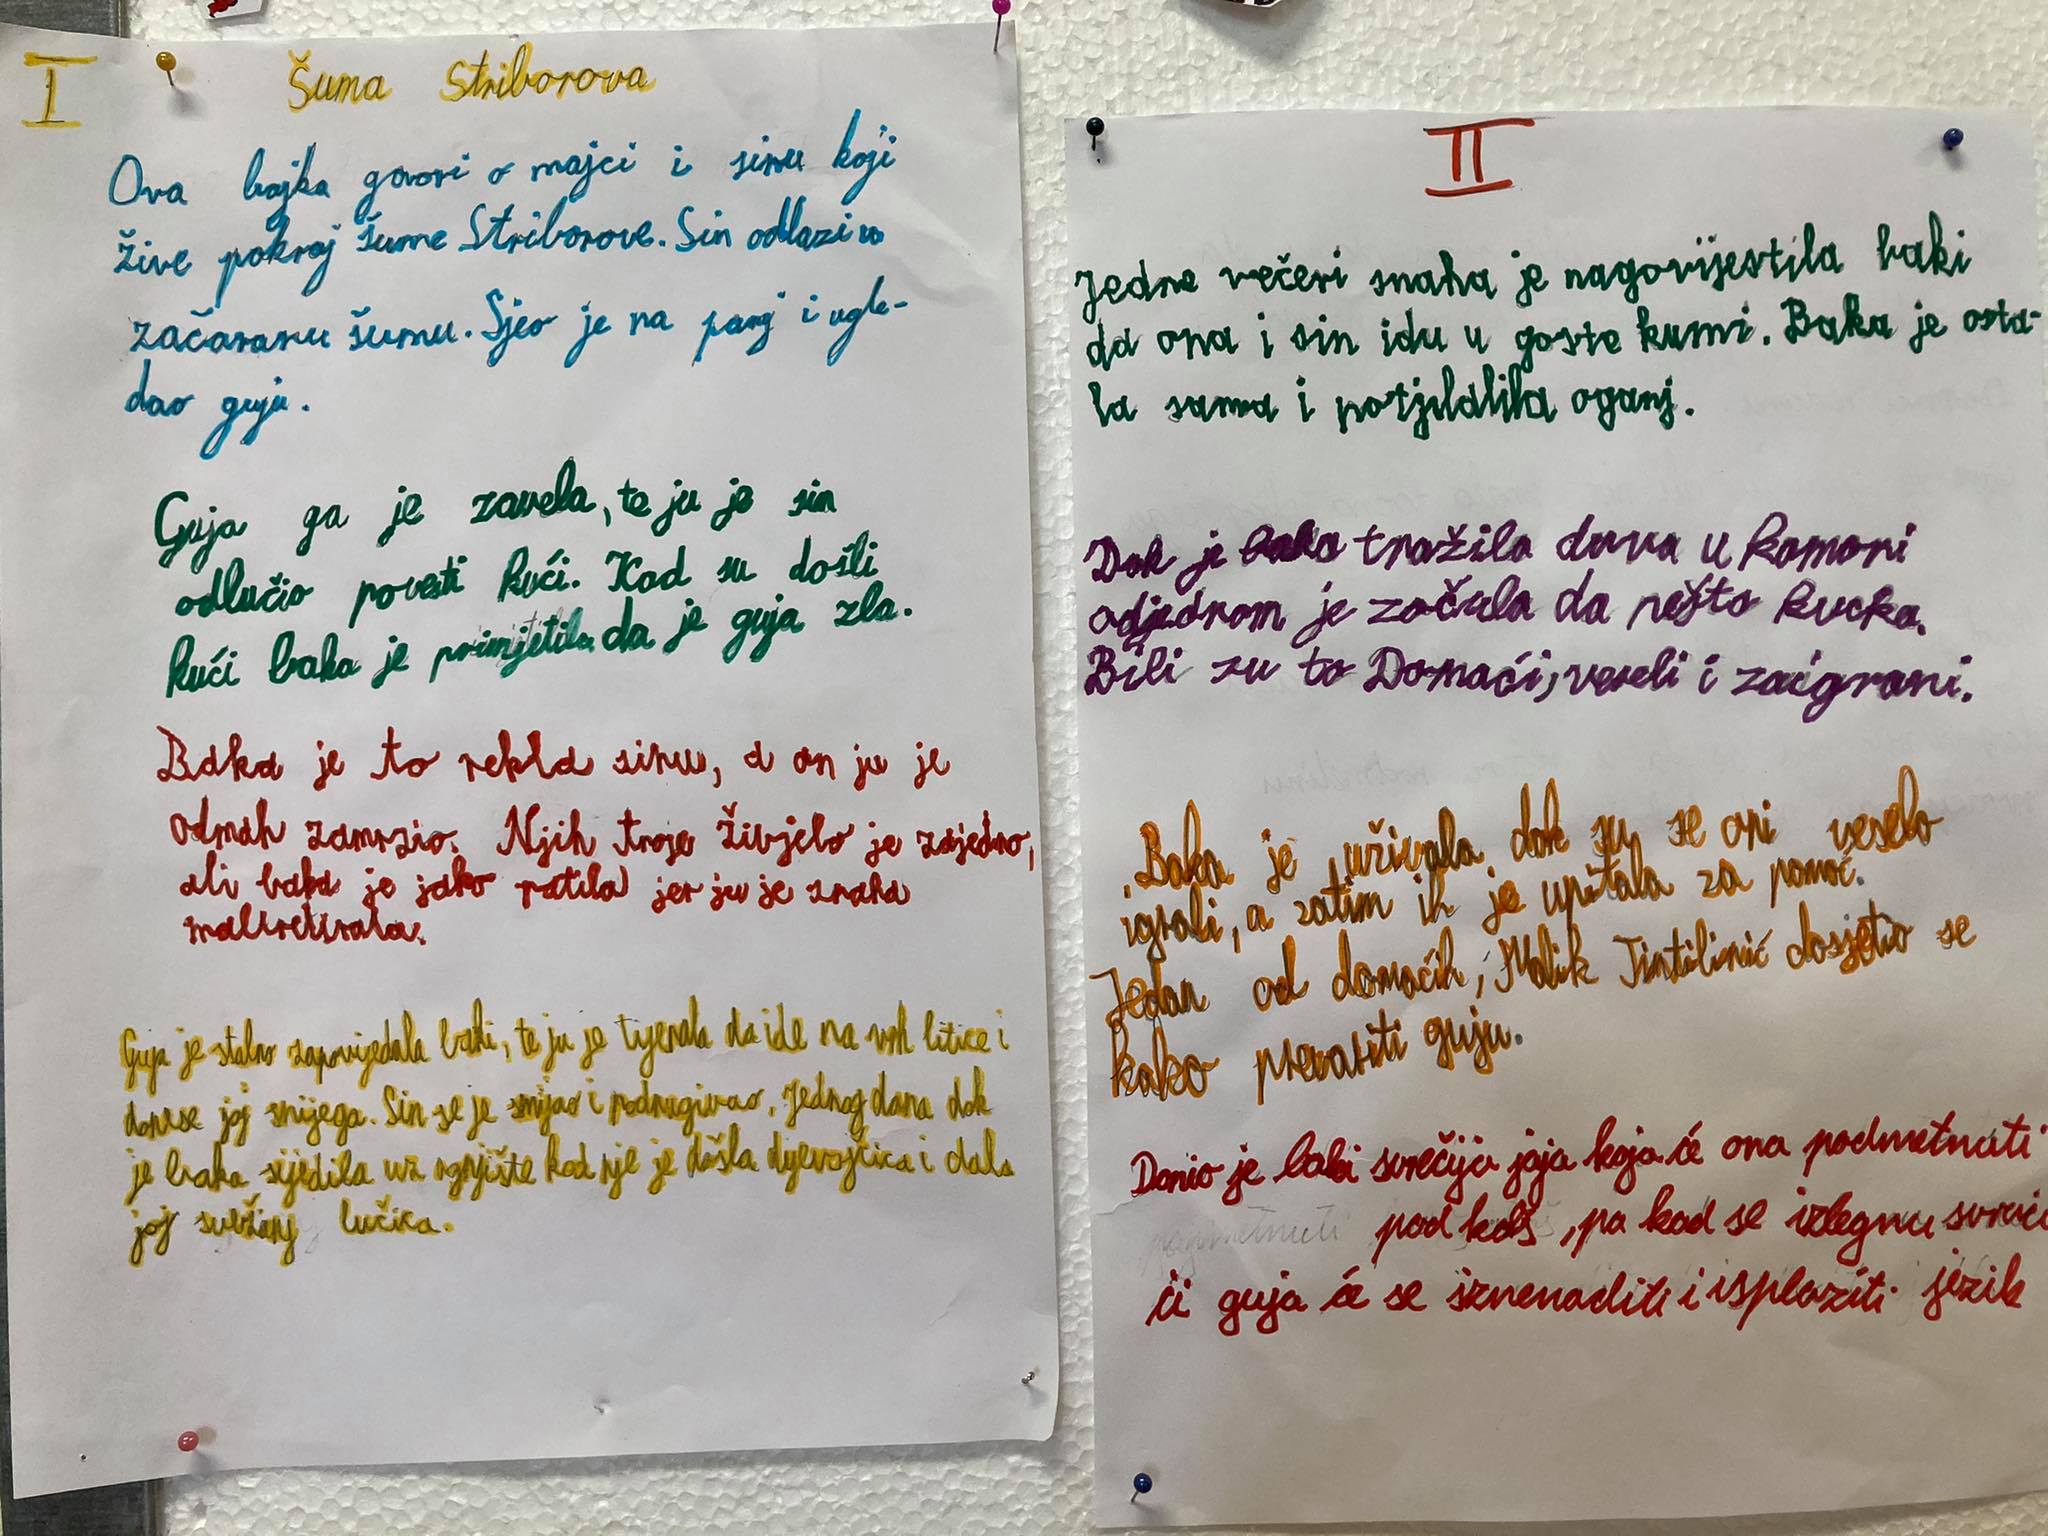 I
Šuma Striborova
Ova bajka govori o majci i sinu koji
žive pokraj šume Striborove. Sin odlazi u
začaranu šumu. Sjeo je na panj i ugle-
dao guju.
Guja ga je zavela, te ju je sin
odlučio povesti kući. Kad su došli
kući baka je primjetila da je guja zla.
Baka je to rekla sinu, a on ju je
odmah zamrzio. Njih troje živjelo je zajedno,
ali baka je jako patila jer ju je snaha
maltretirala.
Guja je stalno zapovijedala baki, te ju je tjerala da ide na vrh litice i
donese joj snijega. Sin se je smijao i podrugivao. Jednog dana dok
je baka sijedila uz ognjište kod nje je došla djevojčica i dala
joj svežanj lučica.
II
Jedne večeri snaha je nagovijestila baki
da ona i sin idu u goste kumi. Baka je osta-
la sama i potjaldila oganj.
Dok je baka tražila drva u komori
odjedrom je začula da nešto kucka.
Bili su to Domaći, veseli i zaigrani.
Baka je uživala dok su se oni veselo
igrali, a zatim ih je upitala za pomoć.
Jedan od domaćih, Malik Tintilinić dosjetio se
kako prevariti guju.
Donio je baki svračija jaja koja će ona podmetnuti
pod koš, pa kad se izlegnu svrači
ći guja će se iznenaditi i isplaziti jezik